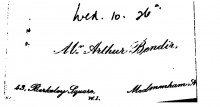 Wed. 10. 26th.
Mrs Arthur Bendir,
43, Berkeley Square,
W.1.
Medmenham,